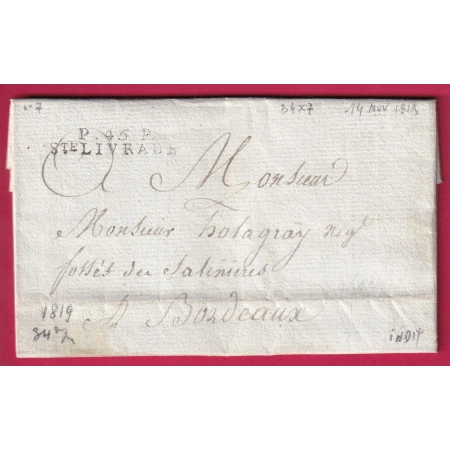 n°7 34x7 14 Nov 1819
P. 45 P.
STE LIVRADE
A Monsieur
Monsieur Tolagray neg^t
fossés des Salinieres
1819 A Bordeaux
34 INDIT